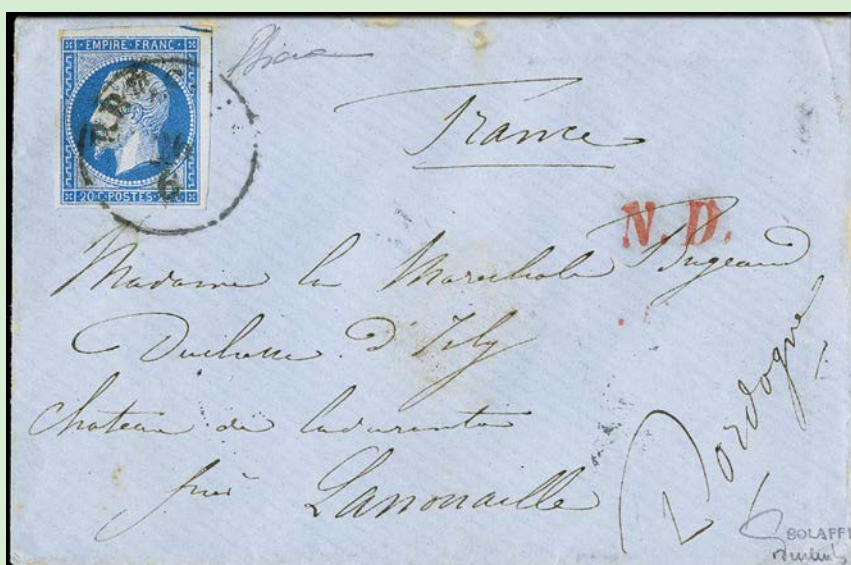 EMPIRE FRANC
20 C. POSTES 20 C.
26
6
France
N. D.
Madame la Marechale Bugeaud
Duchesse d'Isly
chateau de
près Lanouaille
Dordogne
BOLAFFI